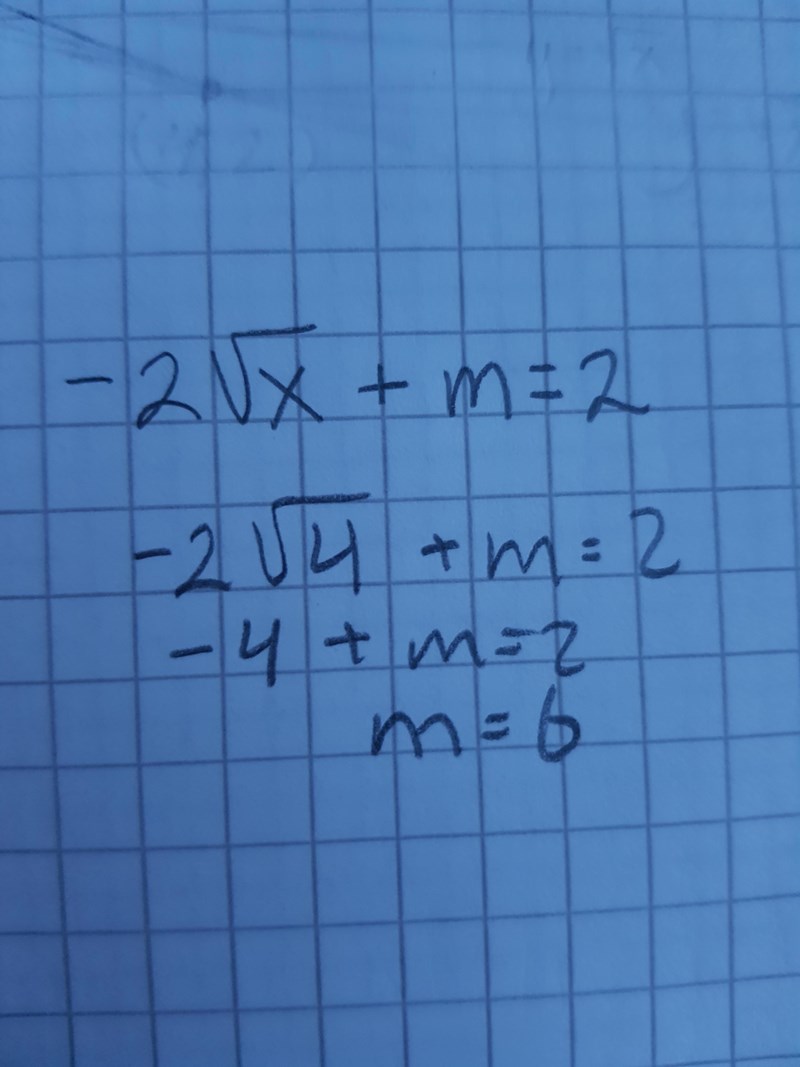 -2√x + m = 2
-2√4 + m = 2
-4 + m = 2
m = 6